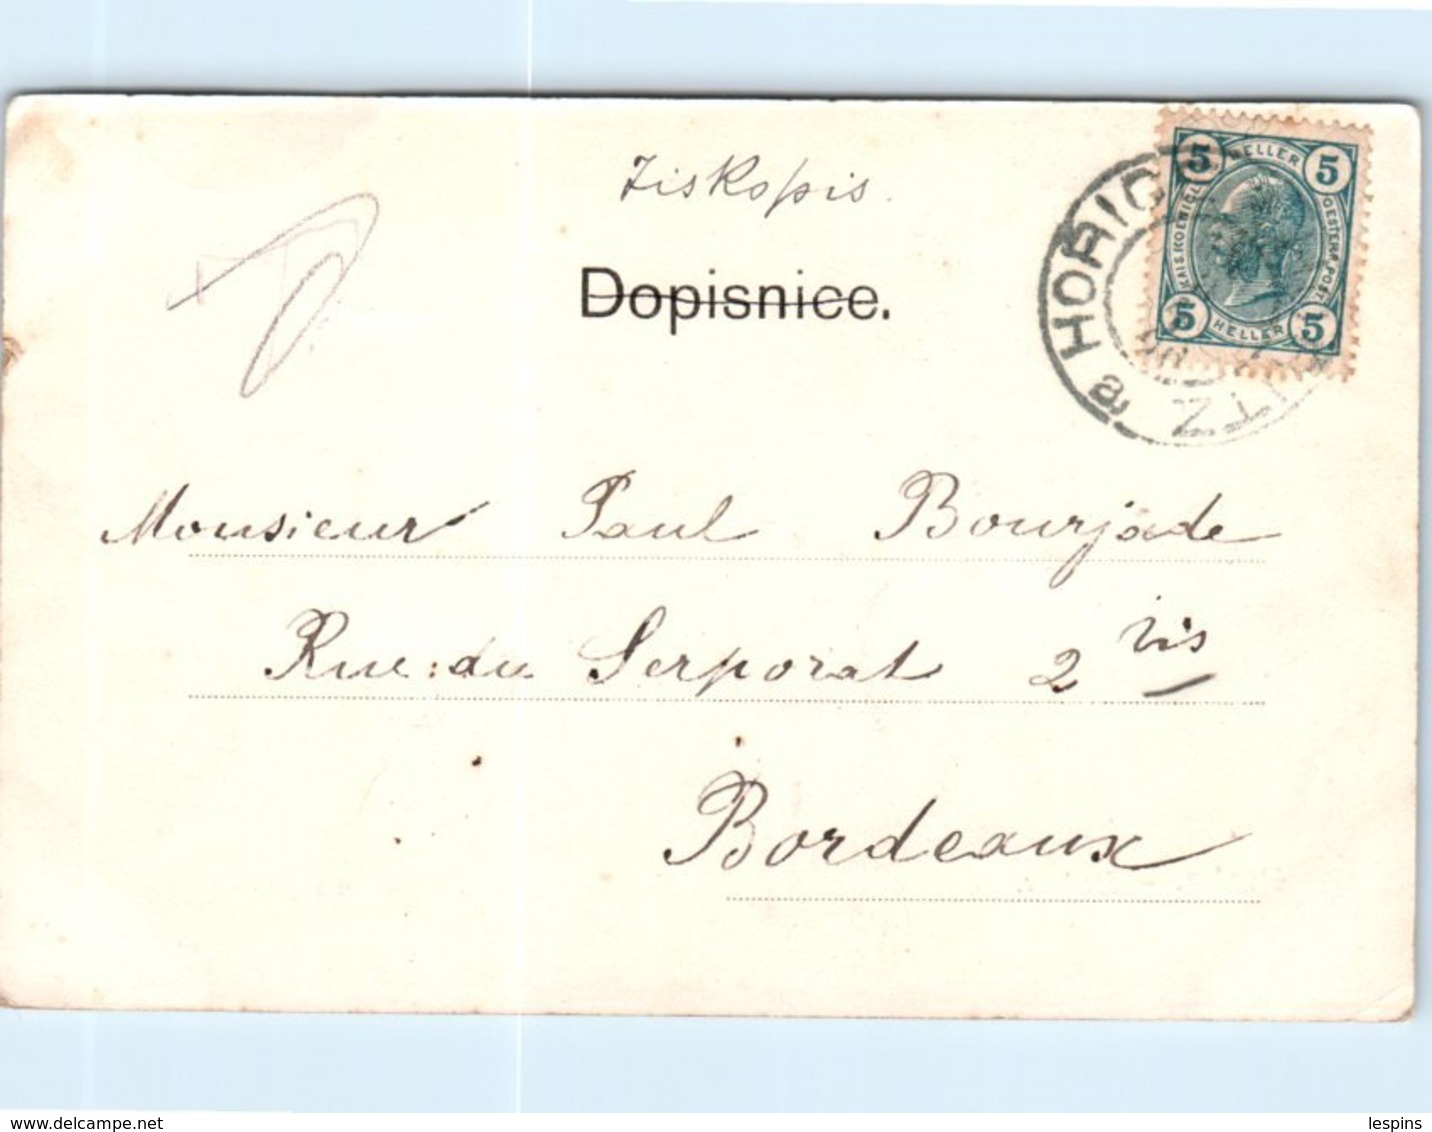 Tiskopis.
Dopisnice.
5 HELLER 5
KAIS. KOENIGL. OESTERR. POST.
5 HELLER 5
HORIC
a
Monsieur Paul Bourjade
Rue du Serporat 2 bis
Bordeaux
delcampe.net
lespins